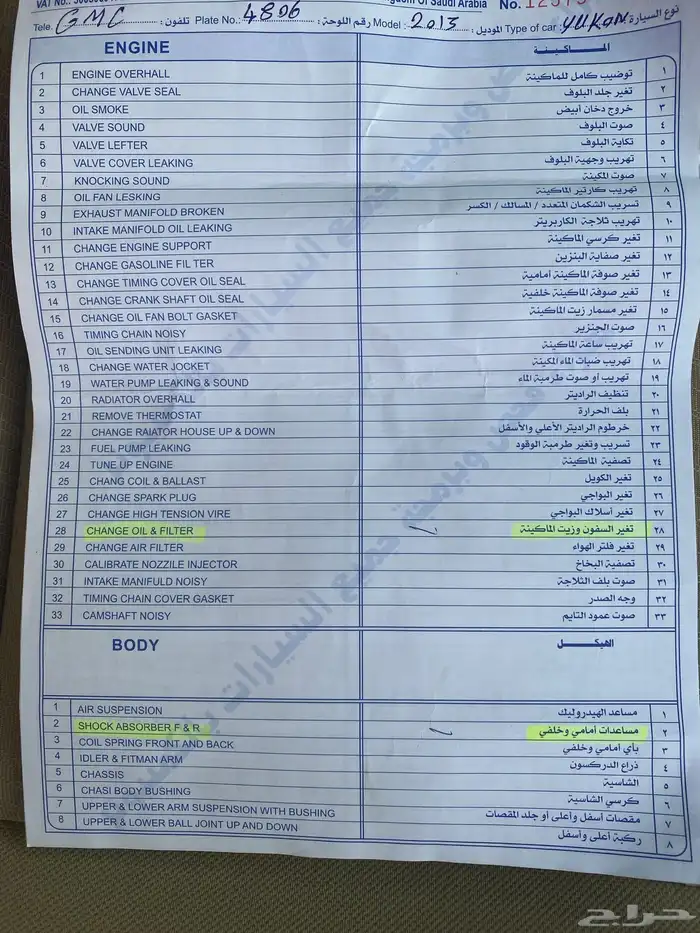 Kingdom Of Saudi Arabia No.
Tele. GMC تلفون: Plate No.: 4806 رقم اللوحة: Model: 2013 الموديل: Type of car YUKON نوع السيارة
ENGINE الماكينة
1 ENGINE OVERHALL توضيب كامل للماكينة ١
2 CHANGE VALVE SEAL تغير جلد البلوف ٢
3 OIL SMOKE خروج دخان أبيض ٣
4 VALVE SOUND صوت البلوف ٤
5 VALVE LEFTER تكاية البلوف ٥
6 VALVE COVER LEAKING تهريب وجهية البلوف ٦
7 KNOCKING SOUND صوت المكينة ٧
8 OIL FAN LESKING تهريب كارتير الماكينة ٨
9 EXHAUST MANIFOLD BROKEN تسريب الشكمان المتعدد / المسالك / الكسر ٩
10 INTAKE MANIFOLD OIL LEAKING تهريب ثلاجة الكاربريتر ١٠
11 CHANGE ENGINE SUPPORT تغير كرسي الماكينة ١١
12 CHANGE GASOLINE FIL TER تغير صفاية البنزين ١٢
13 CHANGE TIMING COVER OIL SEAL تغير صوفة الماكينة أمامية ١٣
14 CHANGE CRANK SHAFT OIL SEAL تغير صوفة الماكينة خلفية ١٤
15 CHANGE OIL FAN BOLT GASKET تغير مسمار زيت الماكينة ١٥
16 TIMING CHAIN NOISY صوت الجنزير ١٦
17 OIL SENDING UNIT LEAKING تهريب ساعة الماكينة ١٧
18 CHANGE WATER JOCKET تهريب ضبات الماء المكينة ١٨
19 WATER PUMP LEAKING & SOUND تهريب أو صوت طرمبة الماء ١٩
20 RADIATOR OVERHALL تنظيف الراديتر ٢٠
21 REMOVE THERMOSTAT بلف الحرارة ٢١
22 CHANGE RAIATOR HOUSE UP & DOWN خرطوم الراديتر الأعلى والأسفل ٢٢
23 FUEL PUMP LEAKING تسريب وتغير طرمبة الوقود ٢٣
24 TUNE UP ENGINE تصفية الماكينة ٢٤
25 CHANG COIL & BALLAST تغير الكويل ٢٥
26 CHANGE SPARK PLUG تغير البواجي ٢٦
27 CHANGE HIGH TENSION VIRE تغير أسلاك البواجي ٢٧
28 CHANGE OIL & FILTER تغير السفون وزيت الماكينة ٢٨
29 CHANGE AIR FILTER تغير فلتر الهواء ٢٩
30 CALIBRATE NOZZILE INJECTOR تصفية البخاخ ٣٠
31 INTAKE MANIFULD NOISY صوت بلف الثلاجة ٣١
32 TIMING CHAIN COVER GASKET وجه الصدر ٣٢
33 CAMSHAFT NOISY صوت عمود التايم ٣٣
BODY الهيكل
1 AIR SUSPENSION مساعد الهيدروليك ١
2 SHOCK ABSORBER F & R مساعدات أمامي وخلفي ٢
3 COIL SPRING FRONT AND BACK يأي أمامي وخلفي ٣
4 IDLER & FITMAN ARM ذراع الدركسون ٤
5 CHASSIS الشاسية ٥
6 CHASI BODY BUSHING كرسي الشاسية ٦
7 UPPER & LOWER ARM SUSPENSION WITH BUSHING مقصات أسفل وأعلى أو جلد المقصات ٧
8 UPPER & LOWER BALL JOINT UP AND DOWN ركبة أعلى وأسفل ٨
حراج